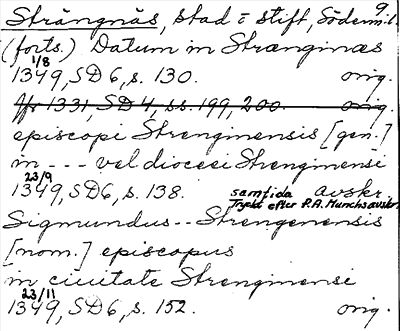 9.
Strängnäs, stad o stift, Söderm.l.
(forts.) Datum in Strænginæs
1/8
1349, SD 6, s. 130. orig.
Jfr 1331, SD 4, ss. 199, 200. orig.
episcopi Strenginensis [gen.]
in --- vel diocesi Strenginensi
23/9
1349, SD 6, s. 138. samtida avskr.
Tryckt efter P.A. Munchs avskr.
Sigmundus -- Strengenensis
[nom.] episcopus
in ciuitate Strenginensi
23/11
1349, SD 6, s. 152. orig.